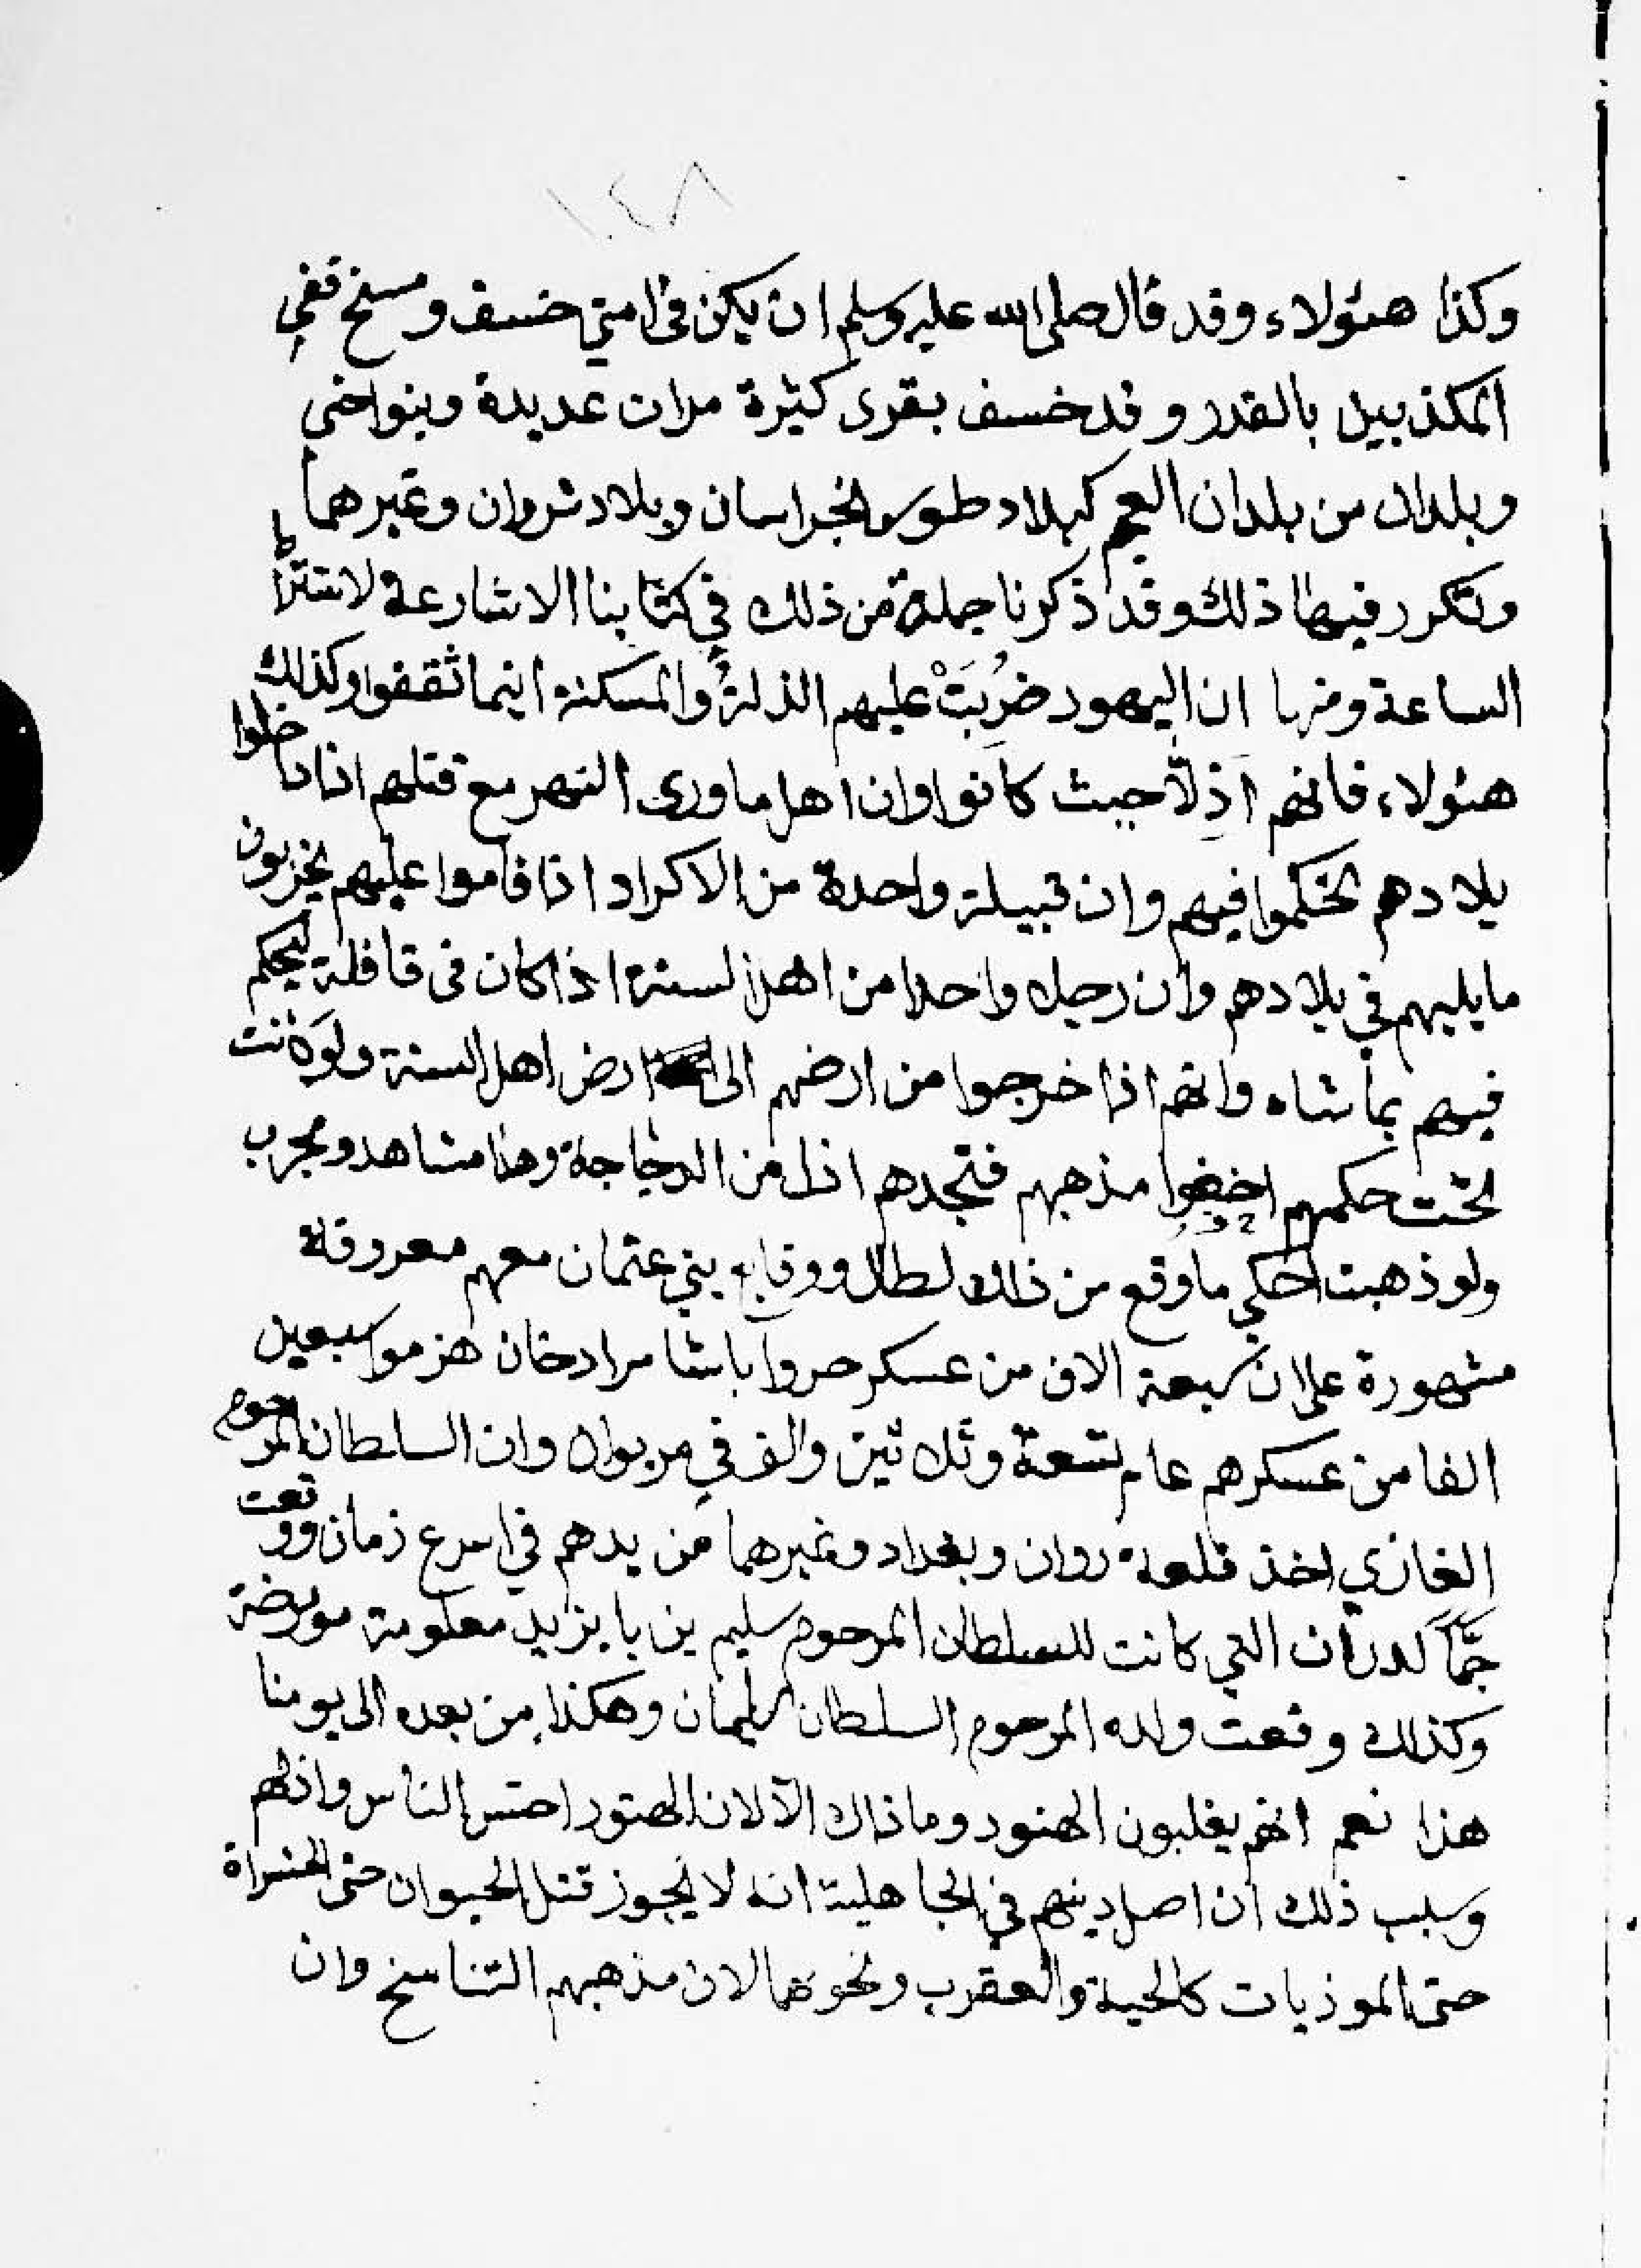 ١٤٨
وكذا هئولاء وقد قال صلى الله عليه وسلم ان يكن في امتي خسف ومسخ ففي
المكذبيل بالقدر وقد خسف بقرى كثيرة مرات عديدة وبنواحي
وبلدان من بلدان العجم كبلاد طوس بخراسان وبلاد شروان وغيرهما
وتكرر فيها ذلك وقد ذكرنا جملة من ذلك في كتابنا الاشاعة لاشراط
الساعة ومنها ان اليهود ضُرِبَتْ عليهم الذلة والمسكنة اينما ثقفوا وكذلك
هئولاء فانهم اذلّا حيث كانوا وان اهل ماورى النهر مع قتلهم اذا دخلوا
بلادهم تحكموا فيهم وان قبيلة واحدة من الاكراد اذا قاموا عليهم يخربون
مايليهم في بلادهم وان رجلا واحدا من اهل السنة اذا كان في قافلة ليحكم
فيهم بماشاء وانهم اذا خرجوا من ارضهم الى ارض اهل السنة ولو كانت
تحت حكمهم اخفوا مذهبهم فتجدهم اذل من الدجاجة وهذا مشاهد ومجرب
ولو ذهبت احكي ماوقع من ذلك لطال ووقايع بني عثمان معهم معروفة
مشهورة على ان سبعة الاف من عسكر حروا باشا مرادخان هزموا سبعين
الفا من عسكرهم عام تسعة وثلاثين والف في مريوان وان السلطان المرحوم
الغازي اخذ قلعة روان وبغداد وغيرهما من يدهم في اسرع زمان ووقعت
جمّا لدران التي كانت للسلطان المرحوم سليم بن بايزيد معلومة
وكذلك وقعت ولده المرحوم السلطان سليمان وهكذا من بعده الى يومنا
هذا نعم انهم يغلبون الهنود وما ذاك الا لان الهنود اخس الناس واذلهم
وسبب ذلك ان اصل دينهم في الجاهلية انه لا يجوز قتل الحيوان حتى الحشراة
حتى الموذيات كالحية والعقرب ونحوهما لان مذهبهم التناسخ وان